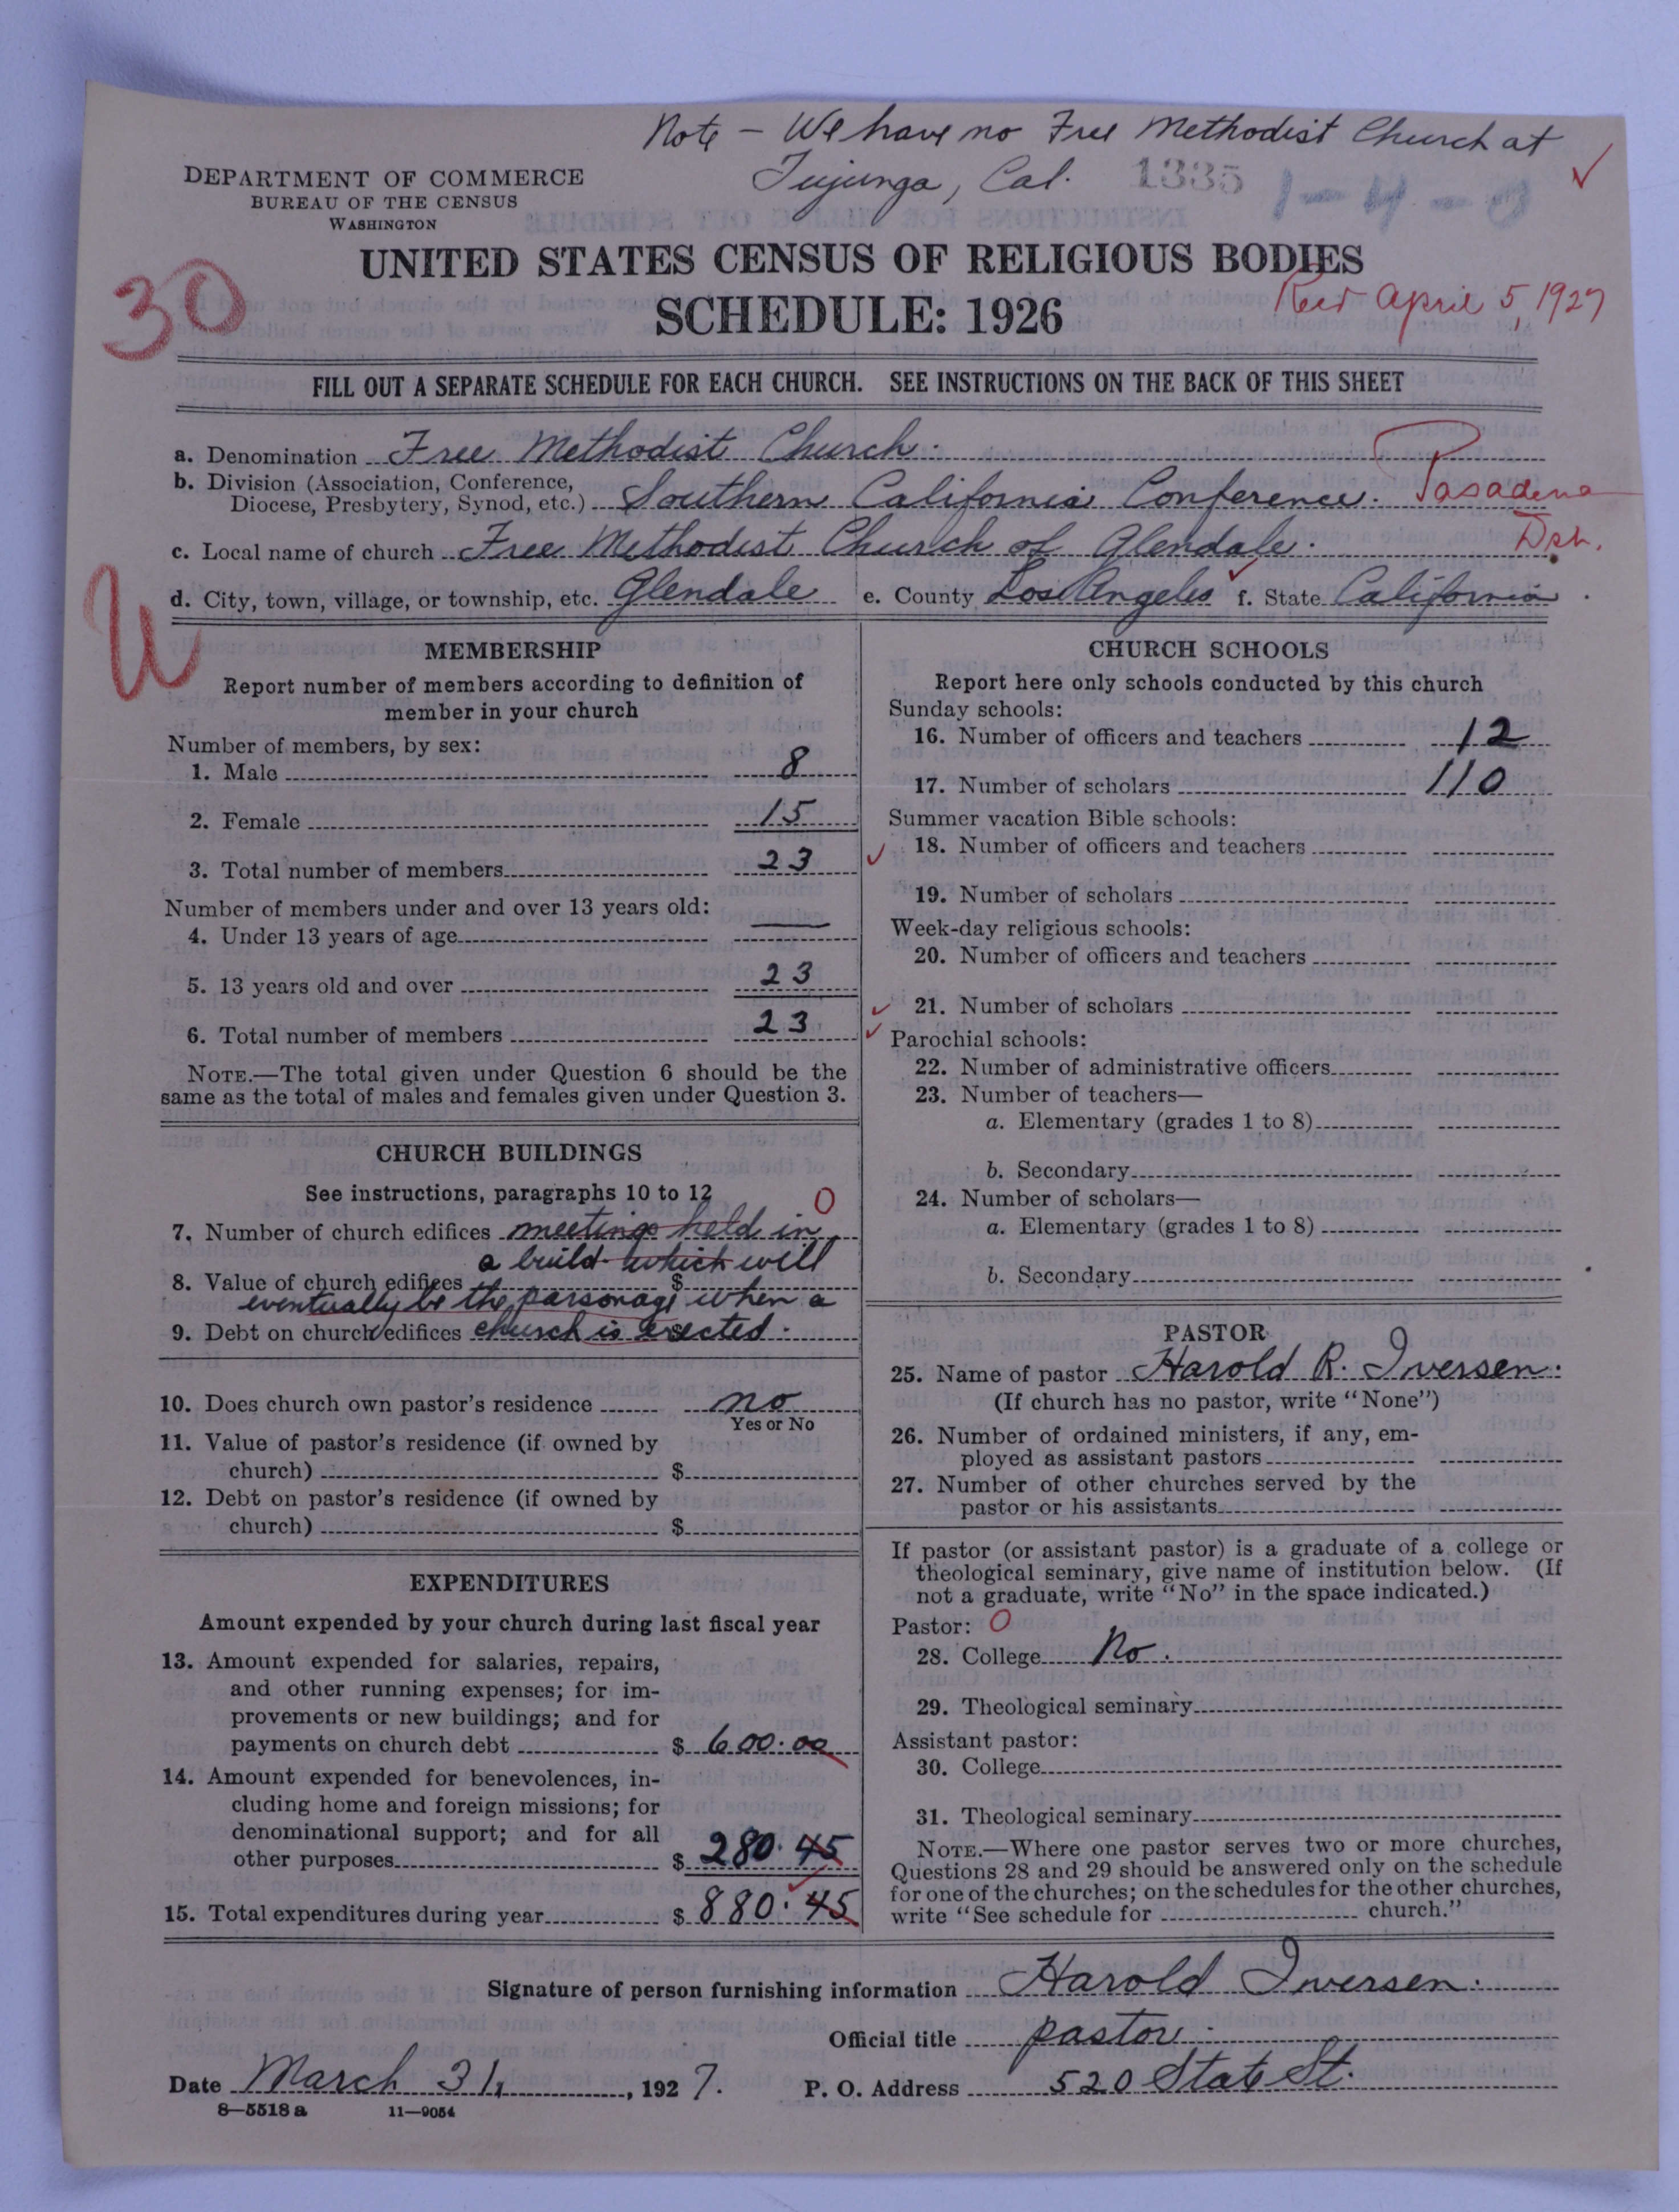 Note - We have no Free Methodist Church at
Tujunga, Cal. 1335 1-4-0
DEPARTMENT OF COMMERCE
BUREAU OF THE CENSUS
WASHINGTON
UNITED STATES CENSUS OF RELIGIOUS BODIES
30
SCHEDULE: 1926
Recd April 5, 1927
FILL OUT A SEPARATE SCHEDULE FOR EACH CHURCH. SEE INSTRUCTIONS ON THE BACK OF THIS SHEET
a. Denomination Free Methodist Church.
b. Division (Association, Conference,
Diocese, Presbytery, Synod, etc.) Southern California Conference. Pasadena
Dsh.
c. Local name of church Free Methodist Church of Glendale.
d. City, town, village, or township, etc. Glendale e. County Los Angeles f. State California.
U
MEMBERSHIP
Report number of members according to definition of
member in your church
Number of members, by sex:
1. Male 8
2. Female 15
3. Total number of members 23
Number of members under and over 13 years old:
4. Under 13 years of age —
5. 13 years old and over 23
6. Total number of members 23
NOTE.—The total given under Question 6 should be the
same as the total of males and females given under Question 3.
CHURCH BUILDINGS
See instructions, paragraphs 10 to 12
0
7. Number of church edifices meetings held in
a build. which will
8. Value of church edifices $
eventually be the parsonage when a
9. Debt on church edifices church is erected. $
10. Does church own pastor's residence no
Yes or No
11. Value of pastor's residence (if owned by
church) $
12. Debt on pastor's residence (if owned by
church) $
EXPENDITURES
Amount expended by your church during last fiscal year
13. Amount expended for salaries, repairs,
and other running expenses; for im-
provements or new buildings; and for
payments on church debt $ 600.00
14. Amount expended for benevolences, in-
cluding home and foreign missions; for
denominational support; and for all
other purposes $ 280.45
15. Total expenditures during year $ 880.45
CHURCH SCHOOLS
Report here only schools conducted by this church
Sunday schools:
16. Number of officers and teachers 12
17. Number of scholars 110
Summer vacation Bible schools:
18. Number of officers and teachers
19. Number of scholars
Week-day religious schools:
20. Number of officers and teachers
21. Number of scholars
Parochial schools:
22. Number of administrative officers
23. Number of teachers—
a. Elementary (grades 1 to 8)
b. Secondary
24. Number of scholars—
a. Elementary (grades 1 to 8)
b. Secondary
PASTOR
25. Name of pastor Harold R. Iversen.
(If church has no pastor, write "None")
26. Number of ordained ministers, if any, em-
ployed as assistant pastors
27. Number of other churches served by the
pastor or his assistants
If pastor (or assistant pastor) is a graduate of a college or
theological seminary, give name of institution below. (If
not a graduate, write "No" in the space indicated.)
Pastor: 0
28. College No.
29. Theological seminary
Assistant pastor:
30. College
31. Theological seminary
NOTE.—Where one pastor serves two or more churches,
Questions 28 and 29 should be answered only on the schedule
for one of the churches; on the schedules for the other churches,
write "See schedule for church."
Signature of person furnishing information Harold Iversen.
Official title pastor.
Date March 31, 1927. P. O. Address 520 State St.
8—5518 a 11—9054